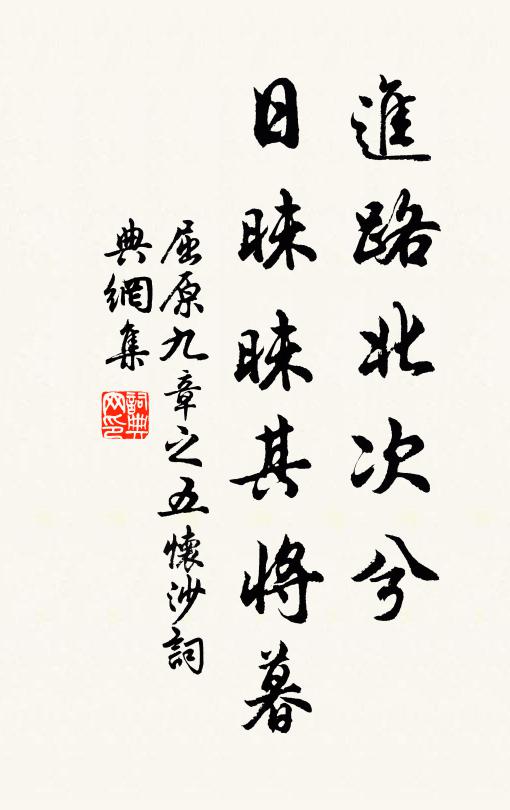 進路北次兮
日昧昧其將暮
屈原九章之五懷沙詞
典網集
詞典
网印